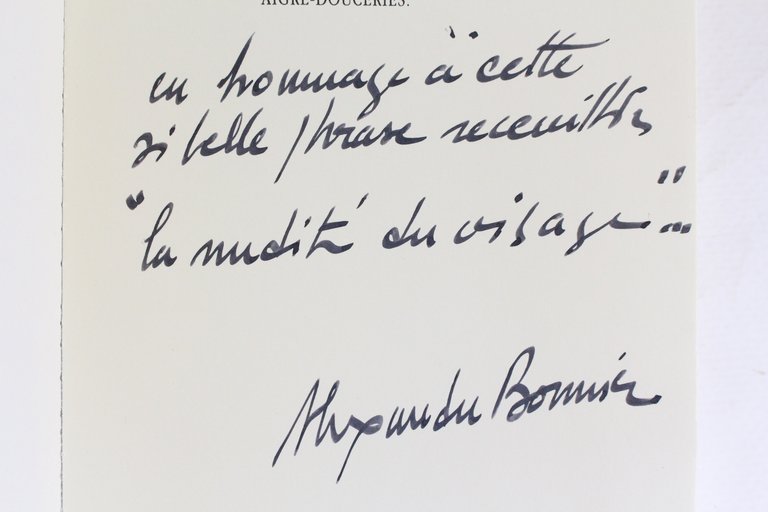 AIGRE-DOUCERIES.
en hommage à cette
si belle phrase recueillie
"la nudité du visage"...
Alexandre Bonnier